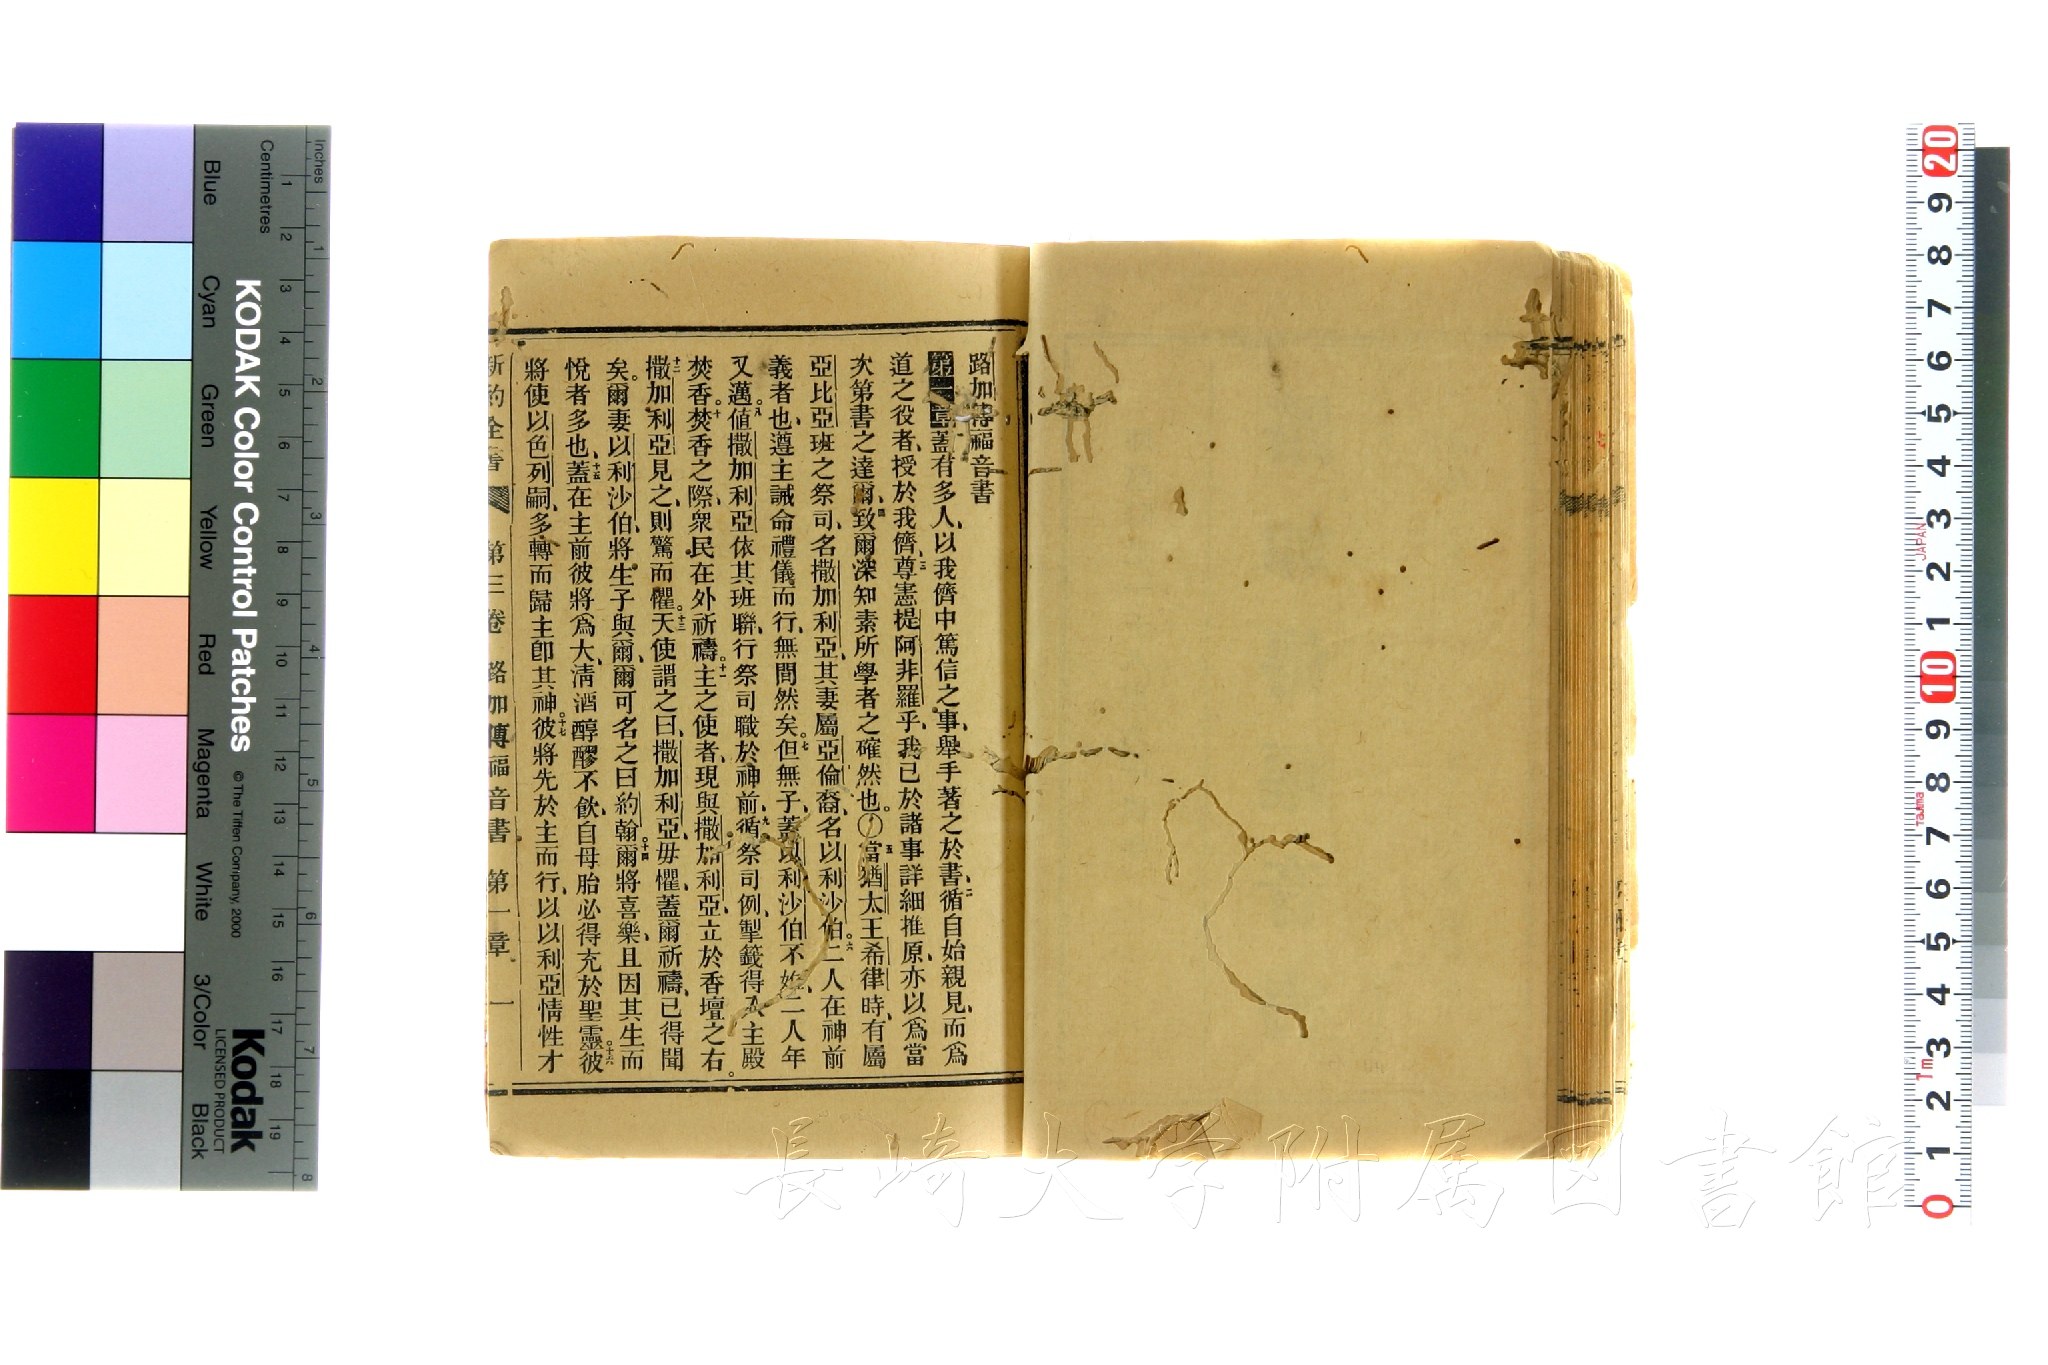 路加傳福音書
第一章蓋有多人、以我儕中篤信之事、舉手著之於書、二循自始親見、而爲
道之役者、授於我儕、三尊憲提阿非羅乎、我已於諸事詳細推原、亦以爲當
次第書之達爾、四致爾深知素所學者之確然也。〇五當猶太王希律時、有屬
亞比亞班之祭司、名撒加利亞、其妻屬亞倫裔、名以利沙伯。六二人在神前
義者也、遵主誡命禮儀而行、無間然矣。七但無子、蓋以利沙伯不姙、二人年
又邁。八値撒加利亞依其班聯、行祭司職於神前、九循祭司例、掣籤得入主殿
焚香。十焚香之際、衆民在外祈禱。十一主之使者、現與撒加利亞、立於香壇之右。
十二撒加利亞見之、則驚而懼。十三天使謂之曰、撒加利亞毋懼、蓋爾祈禱、已得聞
矣。爾妻以利沙伯、將生子與爾、爾可名之曰約翰。十四爾將喜樂、且因其生而
悅者多也、十五蓋在主前彼將爲大、淸酒醇醪不飲、自母胎必得充於聖靈。十六彼
將使以色列嗣、多轉而歸主卽其神。十七彼將先於主而行、以以利亞情性才
新約全書 第三卷 路加傳福音書 第一章 一
Inches
Centimetres
KODAK Color Control Patches
© The Tiffen Company, 2000
Kodak
LICENSED PRODUCT
Blue Cyan Green Yellow Red Magenta White 3/Color Black
1 2 3 4 5 6 7 8 9 10 11 12 13 14 15 16 17 18 19
1 2 3 4 5 6 7 8
20 9 8 7 6 5 4 3 2 1 10 9 8 7 6 5 4 3 2 1 0
JAPAN
Tajima
1m
長崎大学附属図書館